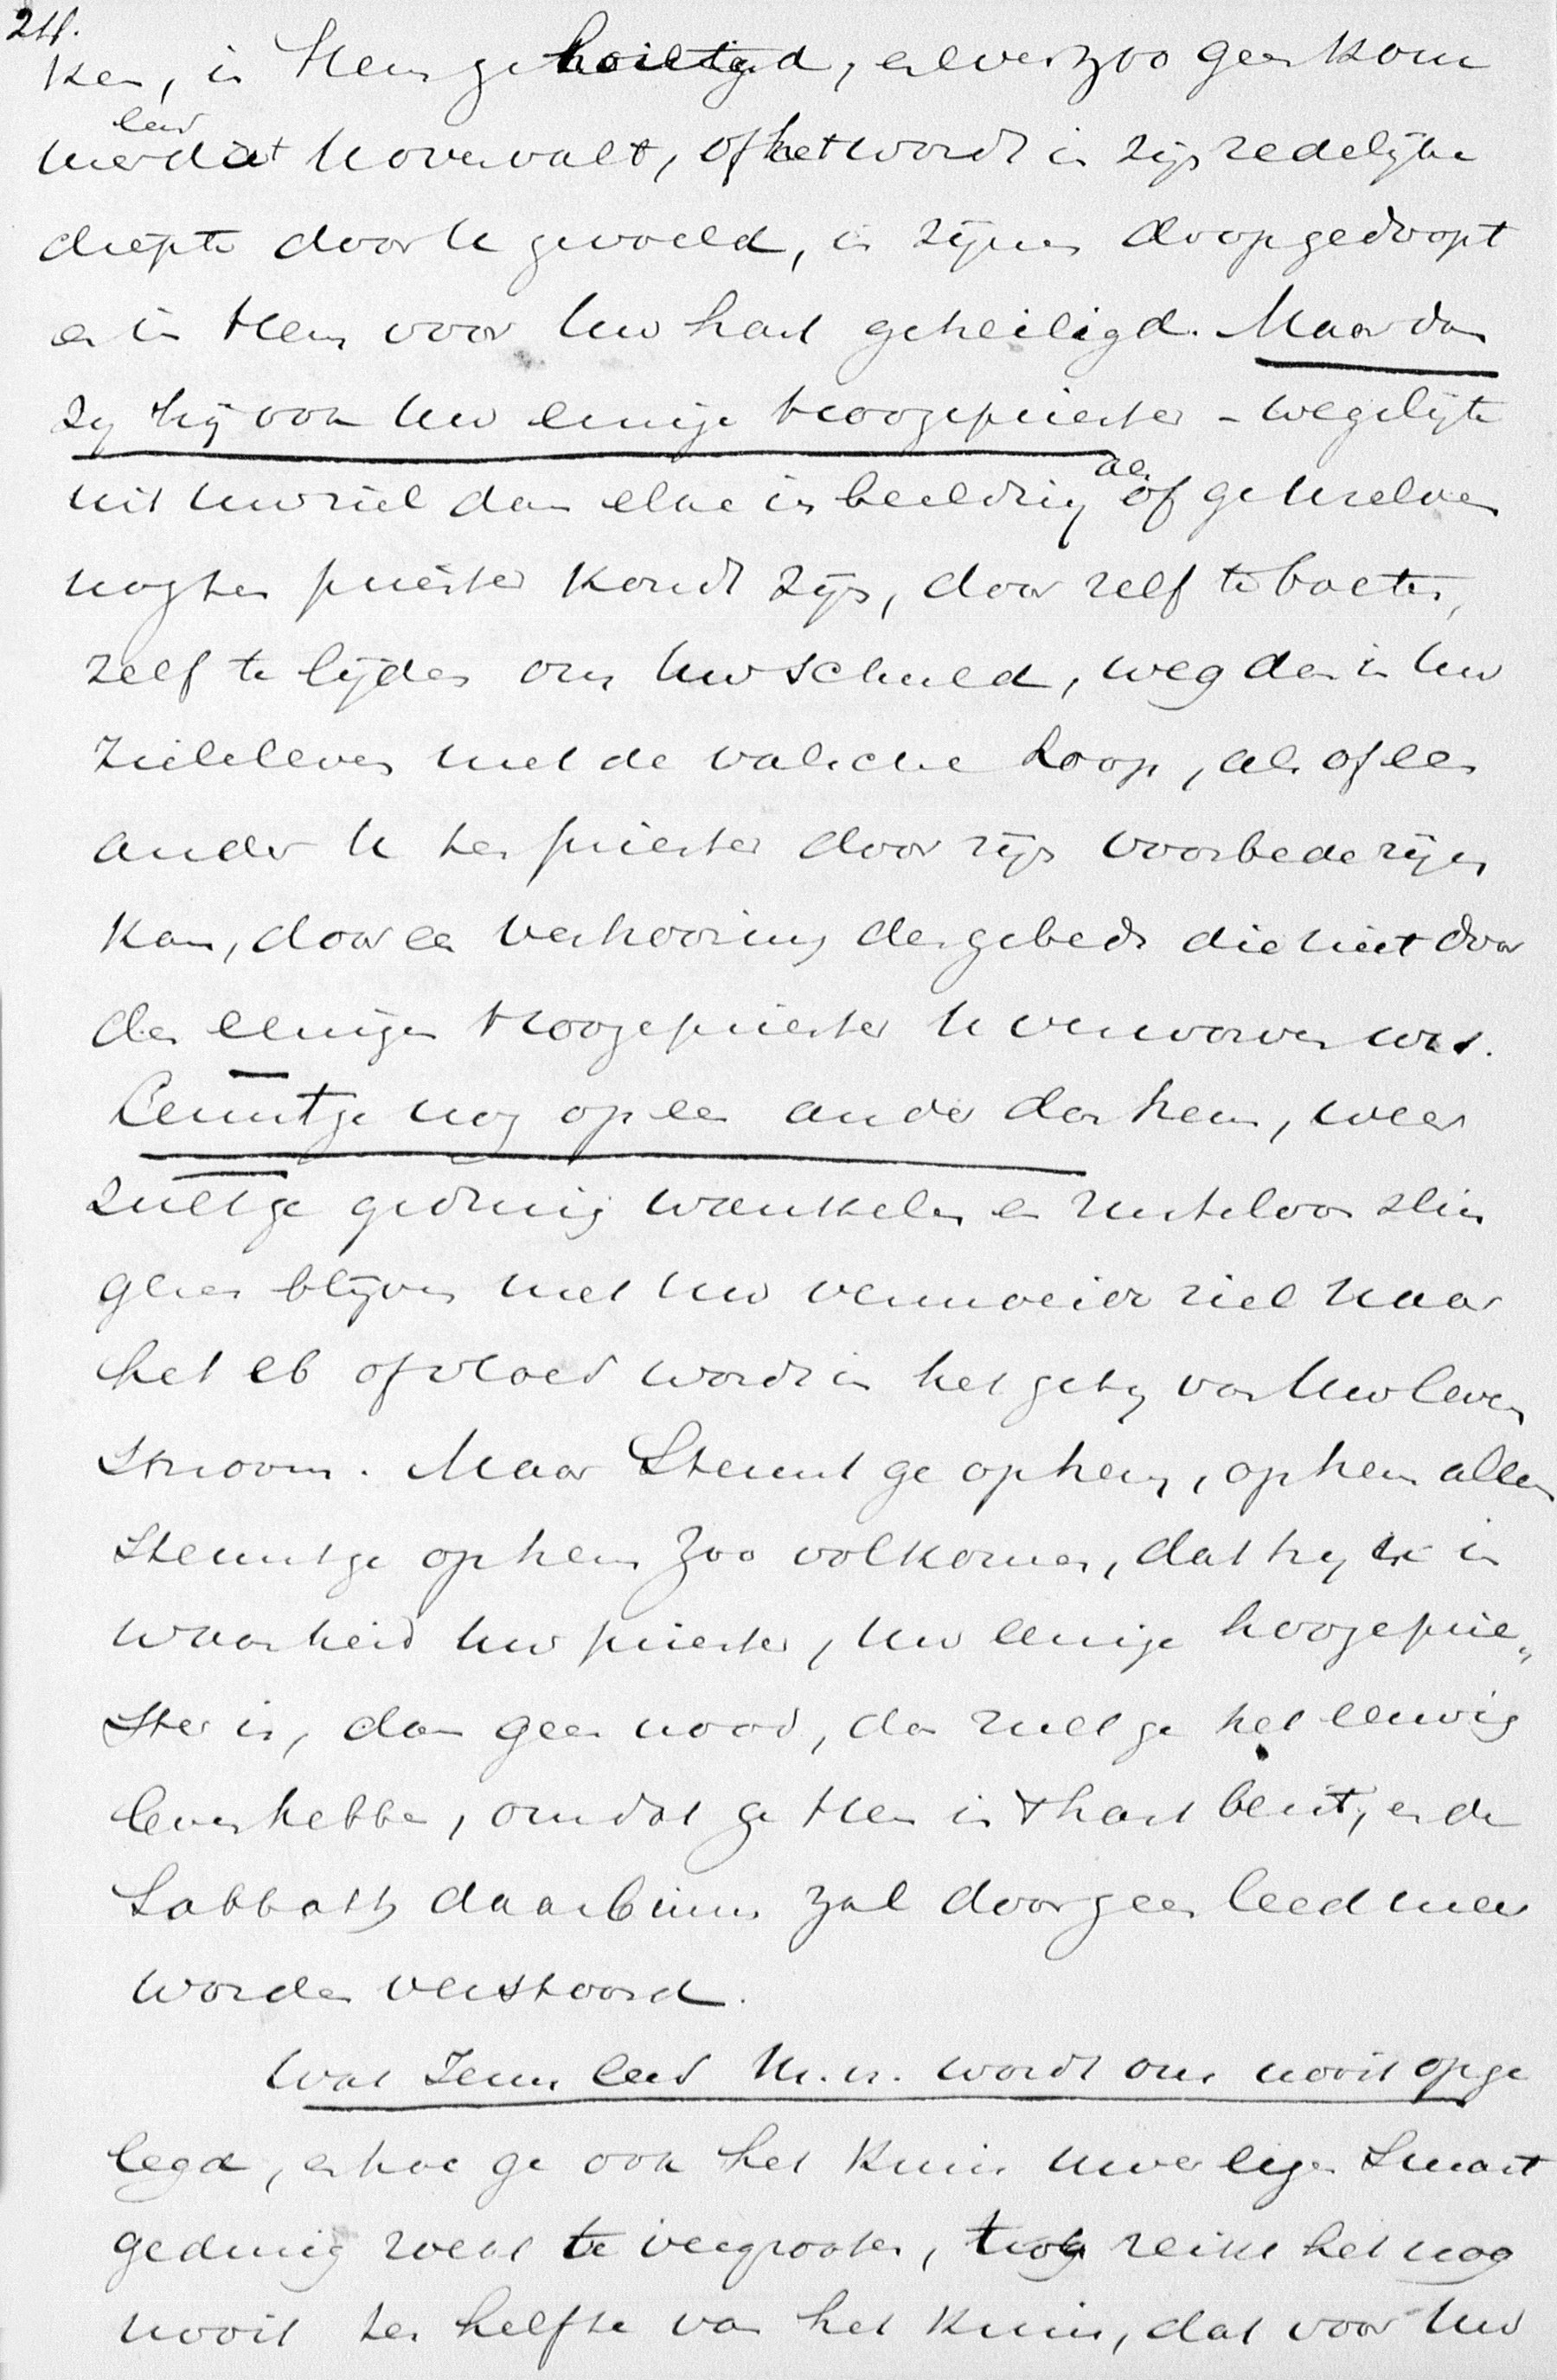 24.
ken, in Hem geheiligd, en even zoo geen kom
mer dat U overvalt, of het wordt in zijn zedelijke
leed
diepte door U gevoeld, in zijnen doop gedoopt
en in Hem voor Uw hart geheiligd. Maar dan
zij Hij ook Uw eenige Hoogepriester - weg elijk
uit Uw ziel dan elke inbeelding als of ge U zelven
nog ten priester kondt zijn, door zelf te boeten,
zelf te lijden om Uw schuld, weg dan in Uw
zieleleven met de valsche hoop, als of een
ander U ten priester door zijn voorbede zijn
kan, door een verhooring des gebeds die niet door
den eenigen Hoogepriester U verworven was.
Leunt ge nog op een ander dan hem, weet
zult ge gedurig wankelen en rusteloos slin
geren blijven met Uw vermoeide ziel naar
het eb of vloed wordt in het getij van Uw leven
stroom. Maar Steunt ge op hem, op hem alleen
Steunt ge op hem zoo volkomen, dat hij in
waarheid Uw priester, Uw eenige hoogeprie„
ster is, dan geen nood, dan zult ge het eeuwig
leven hebben, omdat ge Hem in 't hart bent, en de
Sabbath daarbinnen zal door geen leed meer
worden verstoord.
Wat Jezus leed M.H. wordt ons nooit opge
legd, en hoe ge ook het kruis uwer eigen Smart
gedurig zoekt te vergrooten, toch reikt het nog
nooit ter helfte van het kruis, dat voor Uw